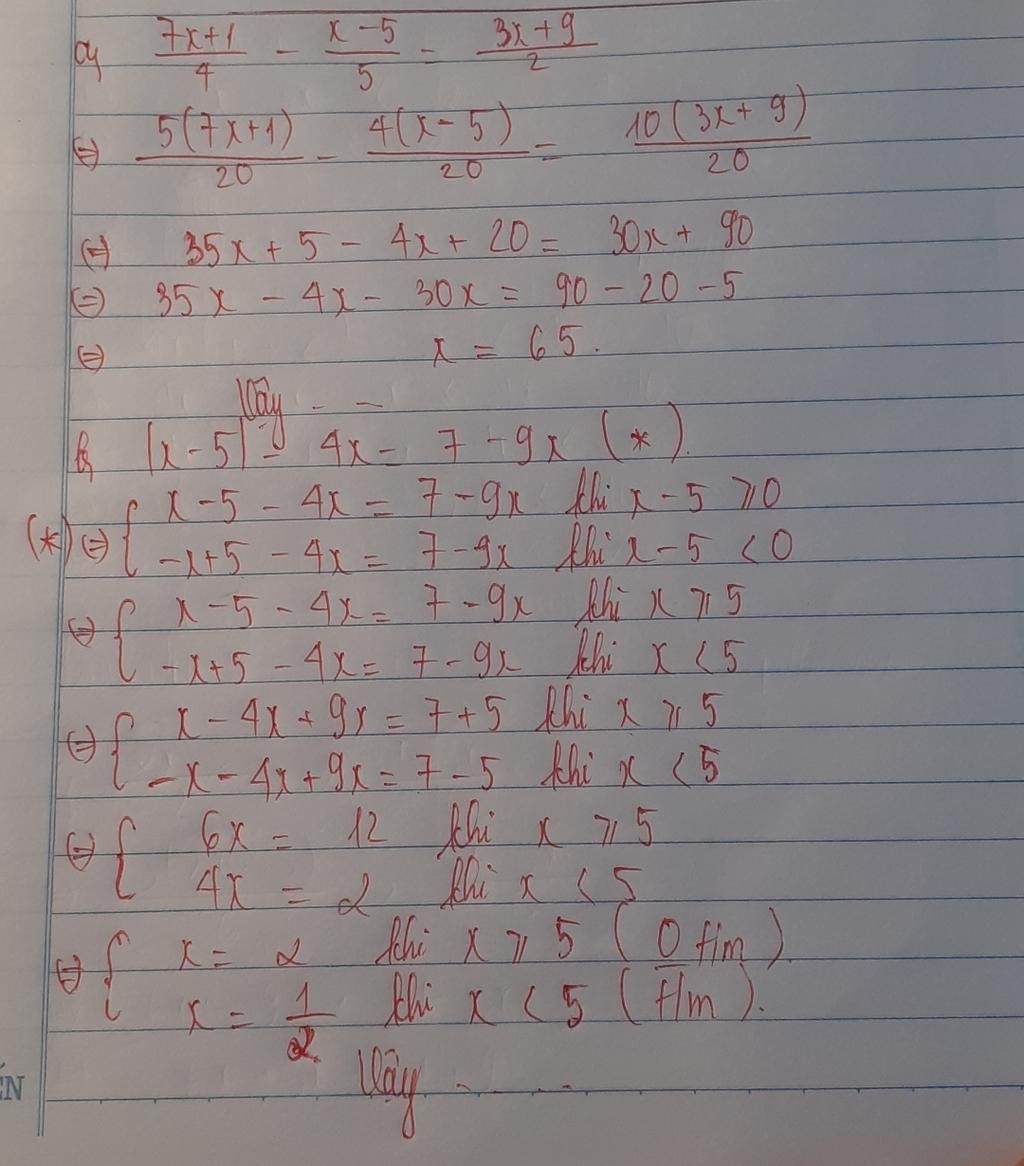 a, (7x+1)/4 - (x-5)/5 = (3x+9)/2
(=) 5(7x+1)/20 - 4(x-5)/20 = 10(3x+9)/20
(=) 35x + 5 - 4x + 20 = 30x + 90
(=) 35x - 4x - 30x = 90 - 20 - 5
(=) x = 65.
Vậy - -
b, |x-5| - 4x = 7 - 9x (*).
(*) (=) { x-5 - 4x = 7 - 9x khi x-5 ⩾ 0
-x+5 - 4x = 7 - 9x khi x-5 < 0
(=) { x-5 - 4x = 7 - 9x khi x ⩾ 5
-x+5 - 4x = 7 - 9x khi x < 5
(=) { x - 4x + 9x = 7 + 5 khi x ⩾ 5
-x - 4x + 9x = 7 - 5 khi x < 5
(=) { 6x = 12 khi x ⩾ 5
4x = 2 khi x < 5
(=) { x = 2 khi x ⩾ 5 (0 t/m)
x = 1/2 khi x < 5 (t/m).
Vậy - - - -
ẾN